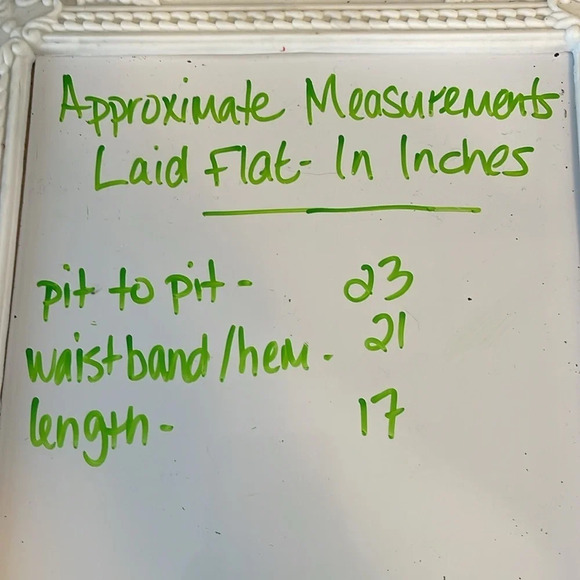 Approximate Measurements
Laid Flat - In Inches
pit to pit - 23
waistband/hem - 21
length - 17